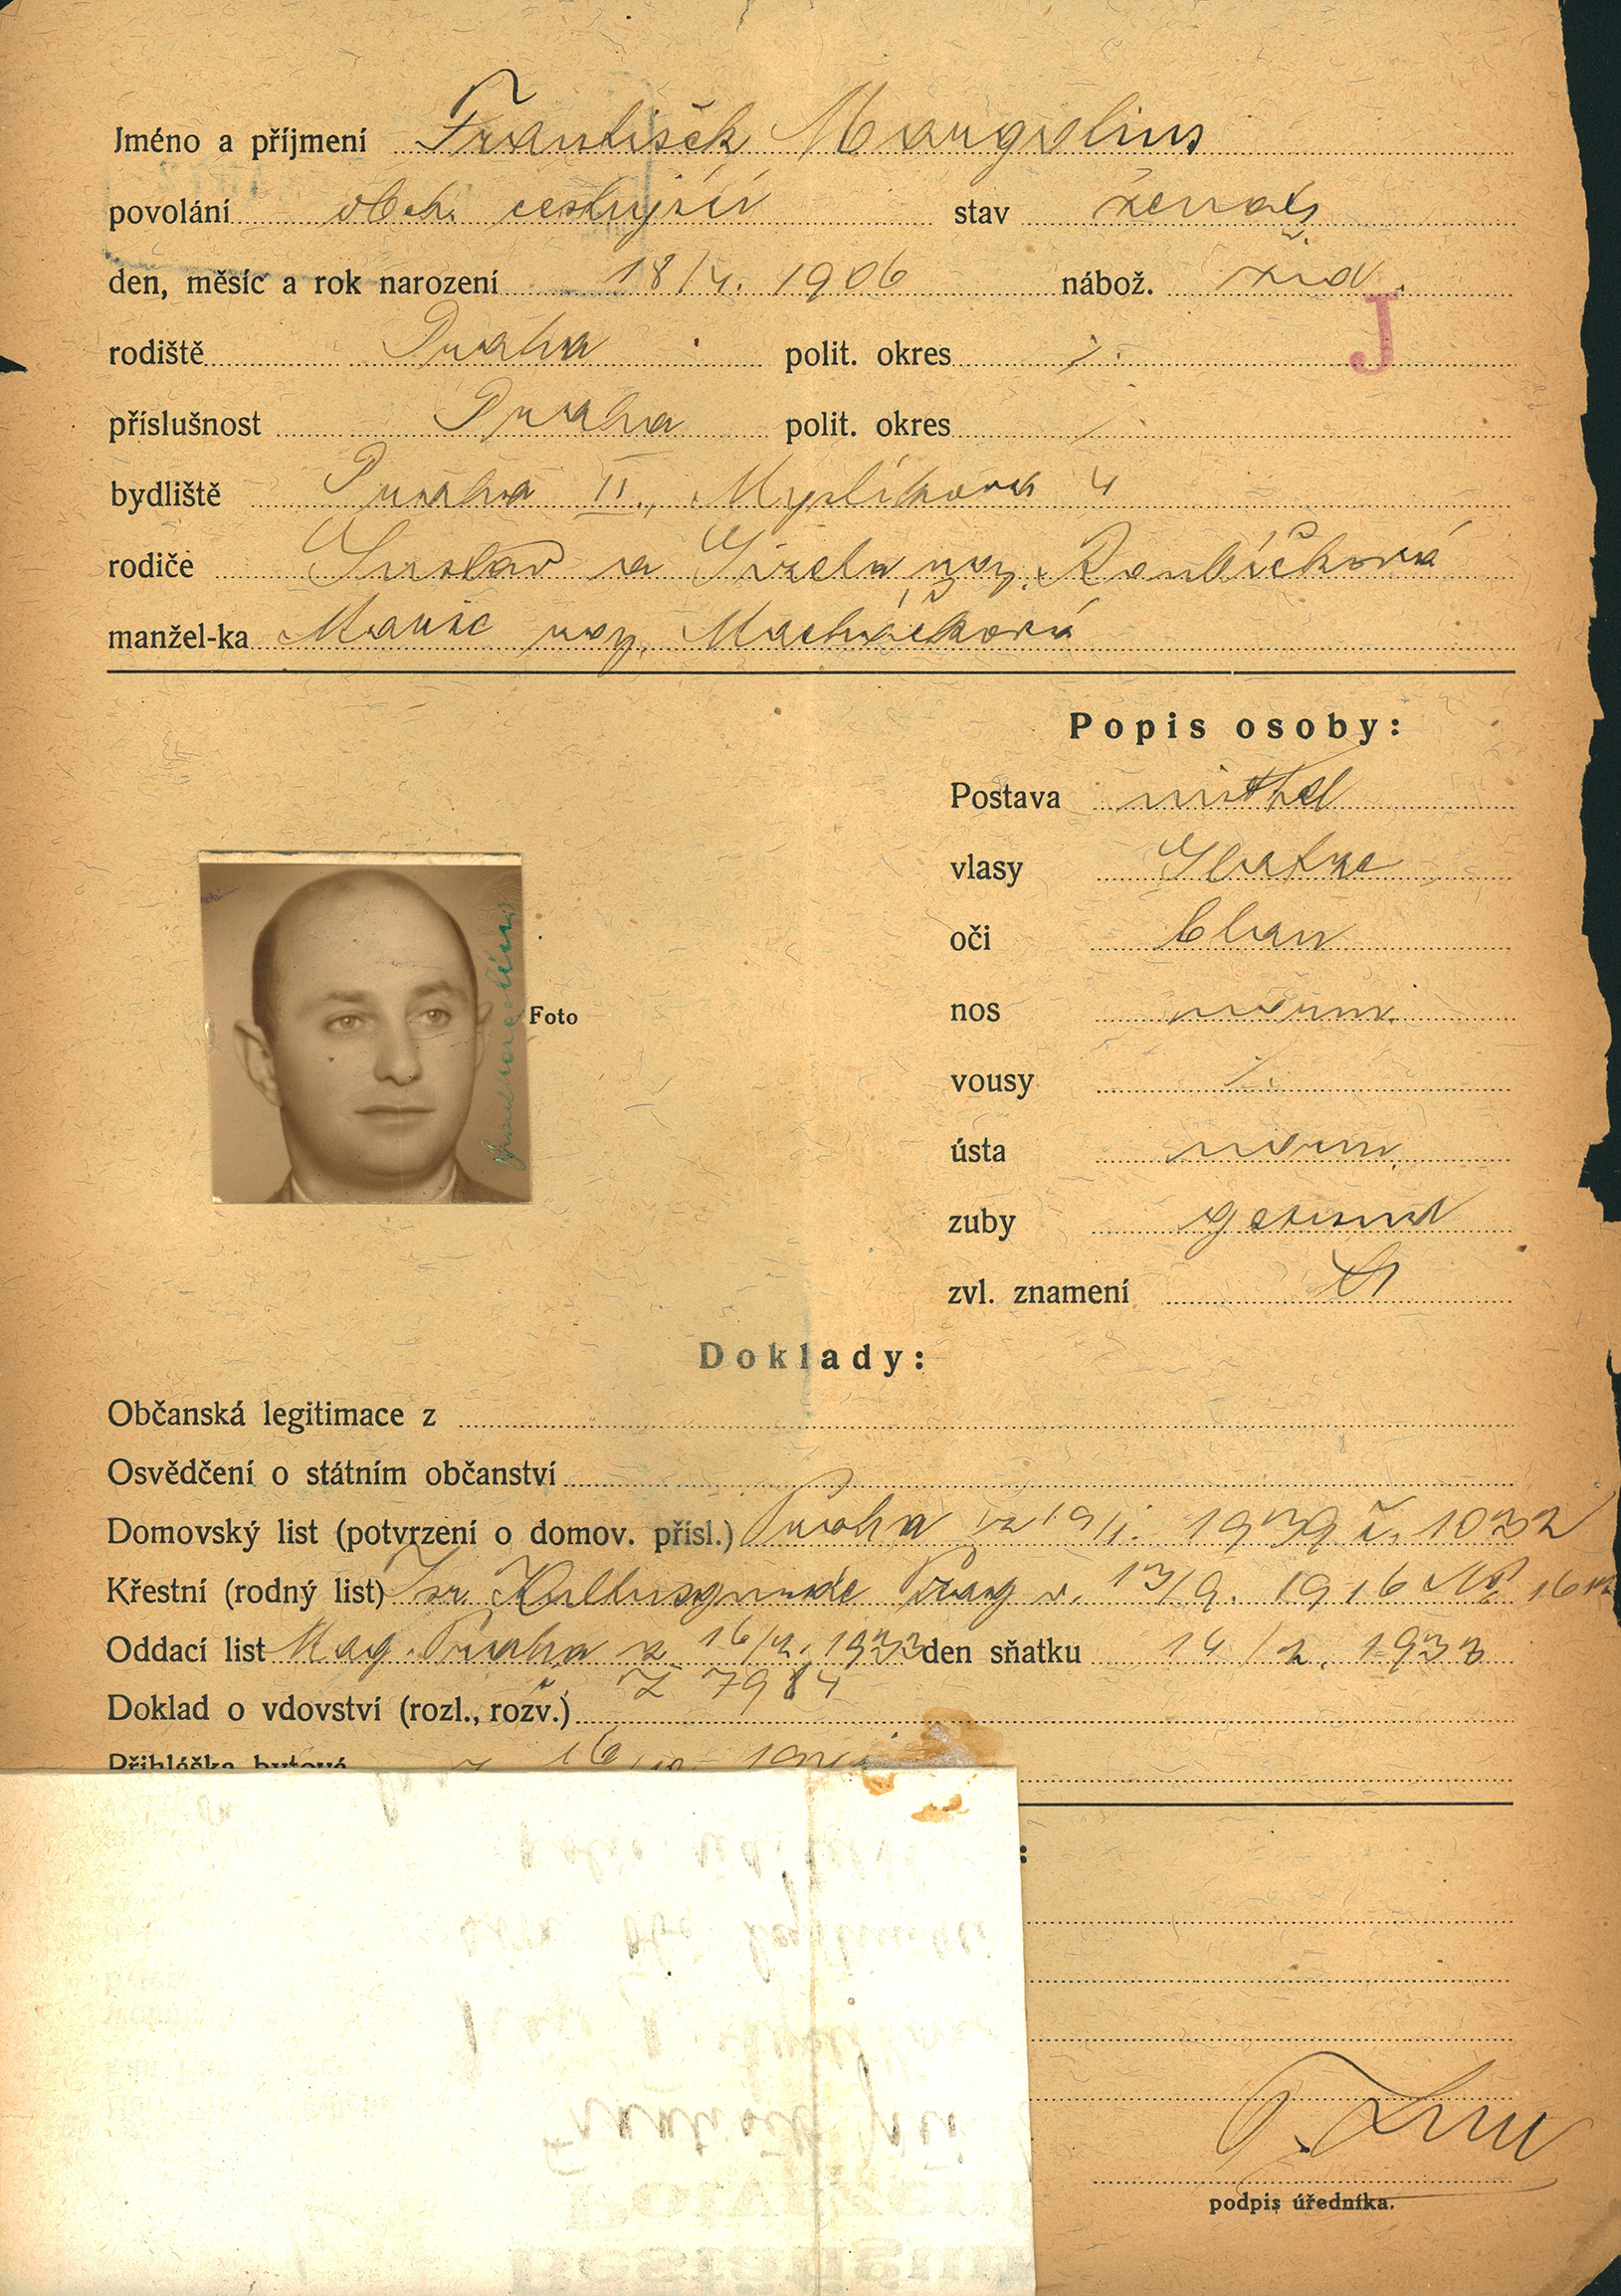 Jméno a příjmení František Margolius
povolání obch. cestující stav ženatý
den, měsíc a rok narození 18/4. 1906 nábož. žid.
J
rodiště Praha polit. okres /.
příslušnost Praha polit. okres /.
bydliště Praha II., Myslíkova 4
rodiče Gustav a Gizela roz. Roubíčková
manžel-ka Marie roz. Macháčková
Popis osoby:
Postava mittel
vlasy Glatze
oči blau
nos norm.
vousy /.
ústa norm.
Foto
zuby gesund
zvl. znamení
Doklady:
Občanská legitimace z
Osvědčení o státním občanství
Domovský list (potvrzení o domov. přísl.) Praha z 19/1. 1939 č. 1032
Křestní (rodný list) Isr. Kultusgemde Prag v. 13/9. 1916 No
Oddací list Mag. Praha z 16/2. 1933 den sňatku 14/2. 1933
Doklad o vdovství (rozl., rozv.) č. Z 7984
Přihláška bytová z 16
:
podpis úředníka.